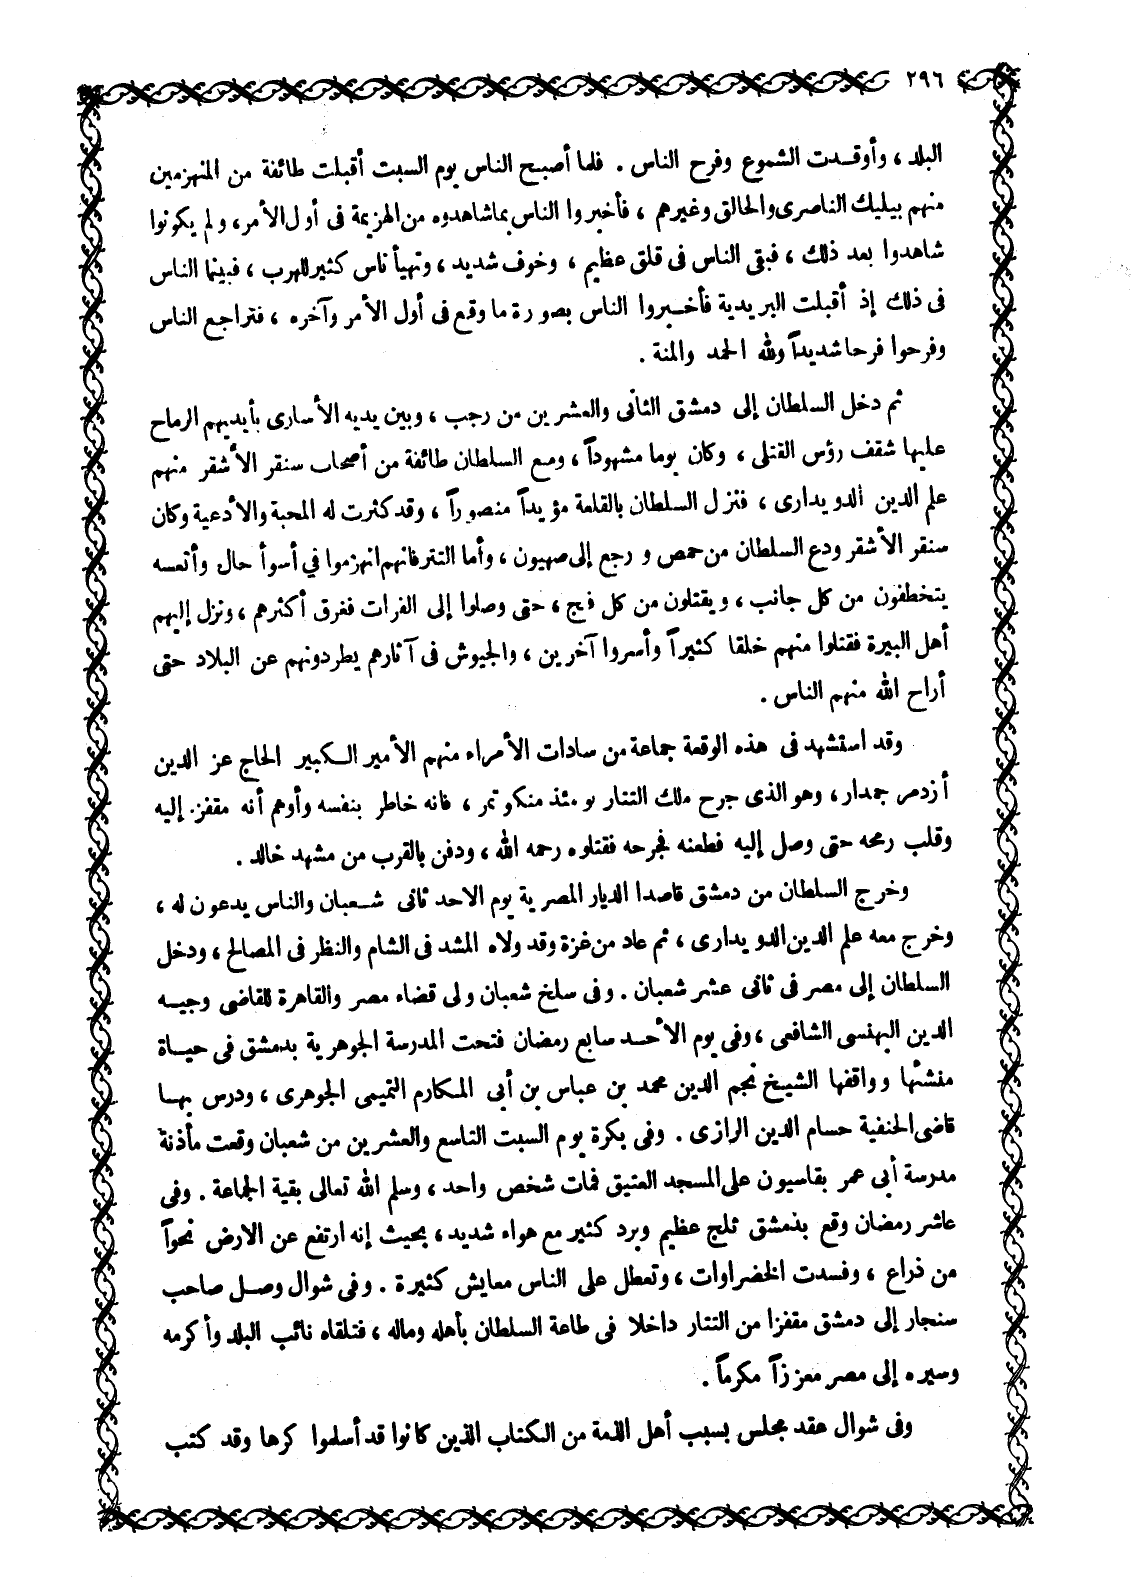 ٢٩٦
البلد ، وأوقدت الشموع وفرح الناس . فلما أصبح الناس يوم السبت أقبلت طائفة من المنهزمين
منهم بيليك الناصرى والحالق وغيرهم ، فأخبروا الناس بما شاهدوه من الهزيمة فى أول الأمر، ولم يكونوا
شاهدوا بعد ذلك ، فبقى الناس فى قلق عظيم ، وخوف شديد ، وتهيأ ناس كثير للهرب ، فبينما الناس
فى ذلك إذ أقبلت البريدية فأخبروا الناس بصورة ما وقع فى أول الأمر وآخره ، فتراجع الناس
وفرحوا فرحا شديداً ولله الحمد والمنة .
ثم دخل السلطان إلى دمشق الثانى والعشرين من رجب ، وبين يديه الأسارى بأيديهم الرماح
عليها شقف رؤس القتلى ، وكان يوما مشهوداً ، ومع السلطان طائفة من أصحاب سنقر الأشقر منهم
علم الدين الدويدارى ، فنزل السلطان بالقلعة مؤيداً منصوراً ، وقد كثرت له المحبة والأدعية وكان
سنقر الأشقر ودع السلطان من حمص ورجع إلى صهيون ، وأما التتر فانهم انهزموا في أسوأ حال وأتعسه
يتخطفون من كل جانب ، ويقتلون من كل فج ، حتى وصلوا إلى الفرات فغرق أكثرهم ، ونزل إليهم
أهل البيرة فقتلوا منهم خلقا كثيراً وأسروا آخرين ، والجيوش فى آثارهم يطردونهم عن البلاد حتى
أراح الله منهم الناس .
وقد استشهد فى هذه الوقعة جماعة من سادات الأمراء منهم الأمير الكبير الحاج عز الدين
أزدمر جمدار ، وهو الذى جرح ملك التتار يومئذ منكوتمر ، فانه خاطر بنفسه وأوهم أنه مقفز إليه
وقلب رمحه حتى وصل إليه فطعنه فجرحه فقتلوه رحمه الله ، ودفن بالقرب من مشهد خالد .
وخرج السلطان من دمشق قاصدا الديار المصرية يوم الاحد ثانى شعبان والناس يدعون له ،
وخرج معه علم الدين الدويدارى ، ثم عاد من غزة وقد ولاه المشد فى الشام والنظر فى المصالح ، ودخل
السلطان إلى مصر فى ثانى عشر شعبان . وفى سلخ شعبان ولى قضاء مصر والقاهرة للقاضى وجيه
الدين البهنسى الشافعى ، وفى يوم الأحد سابع رمضان فتحت المدرسة الجوهرية بدمشق فى حياة
منشئها وواقفها الشيخ نجم الدين محمد بن عباس بن أبي المكارم التميمى الجوهرى ، ودرس بها
قاضى الحنفية حسام الدين الرازى . وفى بكرة يوم السبت التاسع والعشرين من شعبان وقعت مأذنة
مدرسة أبي عمر بقاسيون على المسجد العتيق فمات شخص واحد ، وسلم الله تعالى بقية الجماعة . وفى
عاشر رمضان وقع بدمشق ثلج عظيم وبرد كثير مع هواء شديد ، بحيث إنه ارتفع عن الارض نحواً
من ذراع ، وفسدت الخضراوات ، وتعطل على الناس معايش كثيرة . وفى شوال وصل صاحب
سنجار إلى دمشق مقفزا من التتار داخلا فى طاعة السلطان بأهله وماله ، فتلقاه نائب البلد وأكرمه
وسيره إلى مصر معززاً مكرماً .
وفى شوال عقد مجلس بسبب أهل الذمة من الكتاب الذين كانوا قد أسلموا كرها وقد كتب